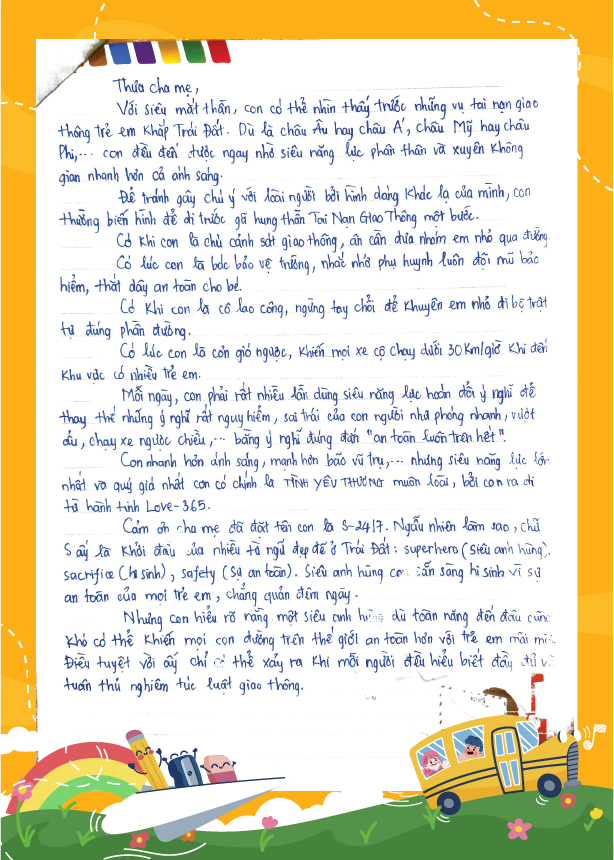 Thưa cha mẹ,
Với siêu mắt thần, con có thể nhìn thấy trước những vụ tai nạn giao
thông trẻ em khắp Trái Đất. Dù là châu Âu hay châu Á, châu Mỹ hay châu
Phi,... con đều đến được ngay nhờ siêu năng lực phân thân và xuyên không
gian nhanh hơn cả ánh sáng.
Để tránh gây chú ý với loài người bởi hình dạng khác lạ của mình, con
thường biến hình để đi trước gã hung thần Tai Nạn Giao Thông một bước.
Có khi con là chú cảnh sát giao thông, ân cần đưa nhóm em nhỏ qua đường.
Có lúc con là bác bảo vệ trường, nhắc nhở phụ huynh luôn đội mũ bảo
hiểm, thắt dây an toàn cho bé.
Có khi con là cô lao công, ngừng tay chổi để khuyên em nhỏ đi bộ trật
tự đúng phần đường.
Có lúc con là cơn gió ngược, khiến mọi xe cộ chạy dưới 30Km/giờ khi đến
khu vực có nhiều trẻ em.
Mỗi ngày, con phải rất nhiều lần dùng siêu năng lực hoán đổi ý nghĩ để
thay thế những ý nghĩ rất nguy hiểm, sai trái của con người như phóng nhanh, vượt
ẩu, chạy xe ngược chiều,... bằng ý nghĩ đúng đắn "an toàn luôn trên hết".
Con nhanh hơn ánh sáng, mạnh hơn bão vũ trụ,... nhưng siêu năng lực lớn
nhất và quý giá nhất con có chính là TÌNH YÊU THƯƠNG muôn loài, bởi con ra đi
từ hành tinh Love-365.
Cảm ơn cha mẹ đã đặt tên con là S-24/7. Ngẫu nhiên làm sao, chữ
S ấy là khởi đầu của nhiều từ ngữ đẹp đẽ ở Trái Đất: superhero (siêu anh hùng),
sacrifice (hi sinh), safety (sự an toàn). Siêu anh hùng con sẵn sàng hi sinh vì sự
an toàn của mọi trẻ em, chẳng quản đêm ngày.
Nhưng con hiểu rõ rằng một siêu anh hùng dù toàn năng đến đâu cũng
khó có thể khiến mọi con đường trên thế giới an toàn hơn với trẻ em mãi mãi.
Điều tuyệt vời ấy chỉ có thể xảy ra khi mỗi người đều hiểu biết đầy đủ và
tuân thủ nghiêm túc luật giao thông.